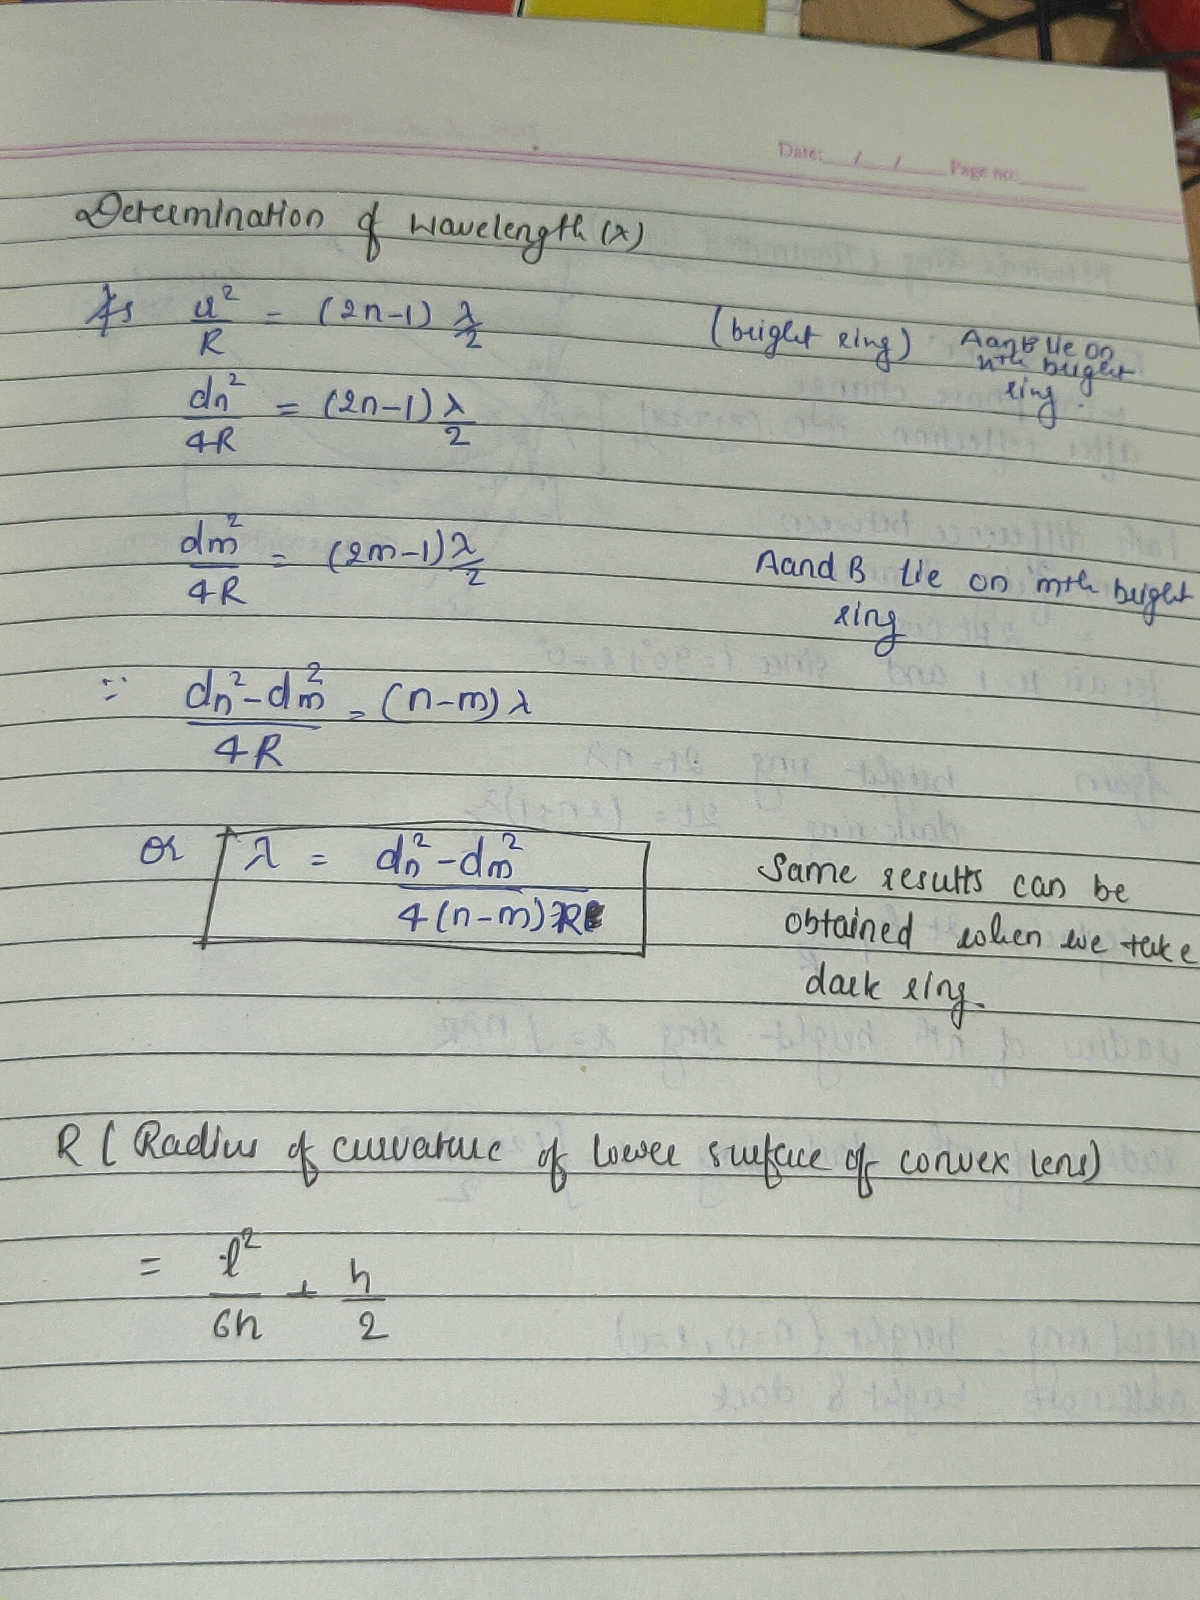 Date: / / Page no:
Determination of wavelength (λ)
As r²/R = (2n-1) λ/2 (bright ring) A and B lie on nth bright ring.
dn²/4R = (2n-1) λ/2
dm²/4R = (2m-1) λ/2 A and B lie on mth bright ring
∵ dn²-dm²/4R = (n-m) λ
or λ = dn²-dm²/4(n-m)R
Same results can be
obtained when we take
dark ring.
R (Radius of curvature of lower surface of convex lens)
= l²/6h + h/2